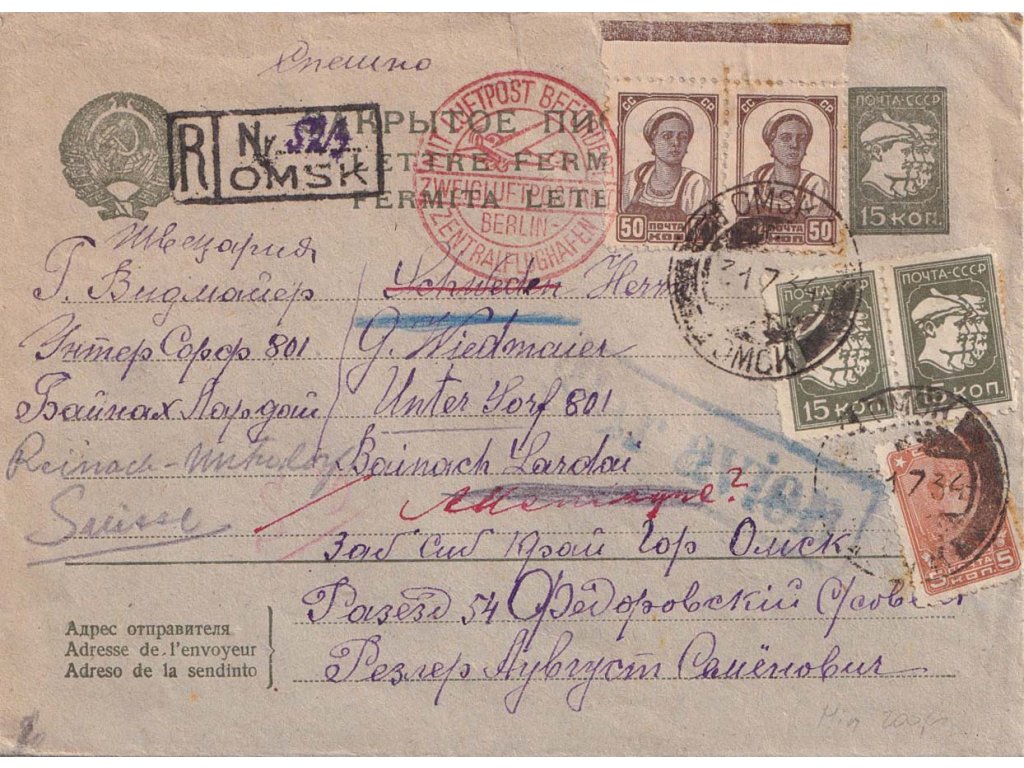 Спешно
ЗАКРЫТОЕ ПИС
LETTRE FERM
FERMITA LETE
R Nr. 523
OMSK
MIT LUFTPOST BEFÖRDERT
ZWEIGLUFTPOSTAMT
BERLIN-
ZENTRALFLUGHAFEN
50 ПОЧТА КОП.
ПОЧТА КОП. 50
ПОЧТА-СССР
15 КОП.
OMSK
1 7 34
ОМСК
ПОЧТА-СССР
15 КОП.
ПОЧТА-СССР
15 КОП.
1 7 34
5 ПОЧТА КОП. 5
Швецария
Г. Видмайер
Унтер Сорф 801
Байнах Лардай
Reinach-
Suisse
Schweden Herrn
G. Wiedmaier
Unter Sorf 801
Bainach Lardai
Allemagne?
Par avion
Заб Сиб Край Гор Омск
Разезд 54 Фёдоровскій С/совет
Резлер Аувгуст Семёнович
Адрес отправителя
Adresse de l'envoyeur
Adreso de la sendinto